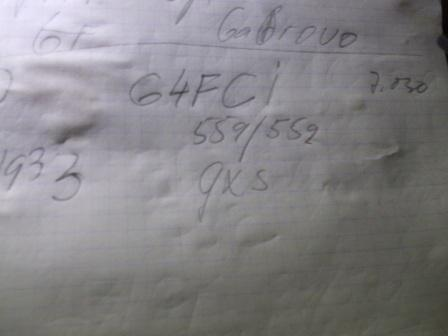 Gabrovo
G4FCi 7.030
559/559
1933 gxs